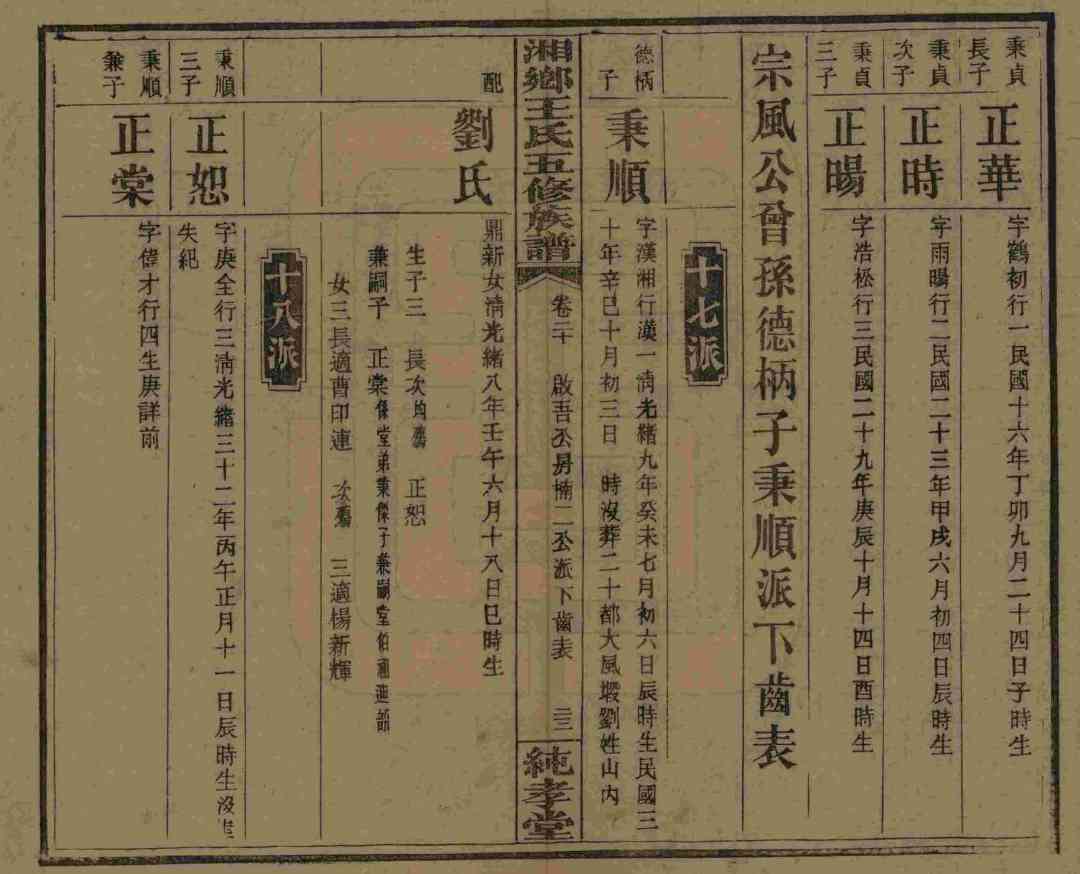 秉貞長子
正華
字鶴初行一民國十六年丁卯九月二十四日子時生
秉貞次子
正時
字雨暘行二民國二十三年甲戌六月初四日辰時生
秉貞三子
正暘
字浩松行三民國二十九年庚辰十月十四日酉時生
宗風公曾孫德柄子秉順派下齒表
十七派
德柄子
秉順
字漢湘行漢一清光緒九年癸未七月初六日辰時生民國三
十年辛巳十月初三日 時沒葬二十都大風塅劉姓山內
湘鄉王氏五修族譜
卷二十 啟吾公房楠二公派下齒表 二三
純孝堂
配
劉氏
鼎新女清光緒八年壬午六月十八日巳時生
生子三 長次均殤 正恕
兼嗣子 正棠 係堂弟秉傑子兼嗣堂伯
女三長適曹印連 次殤 三適楊新輝
十八派
秉順三子
正恕
字庚全行三清光緒三十二年丙午正月十一日辰時生沒葬
失紀
秉順兼子
正棠
字偉才行四生庚詳前